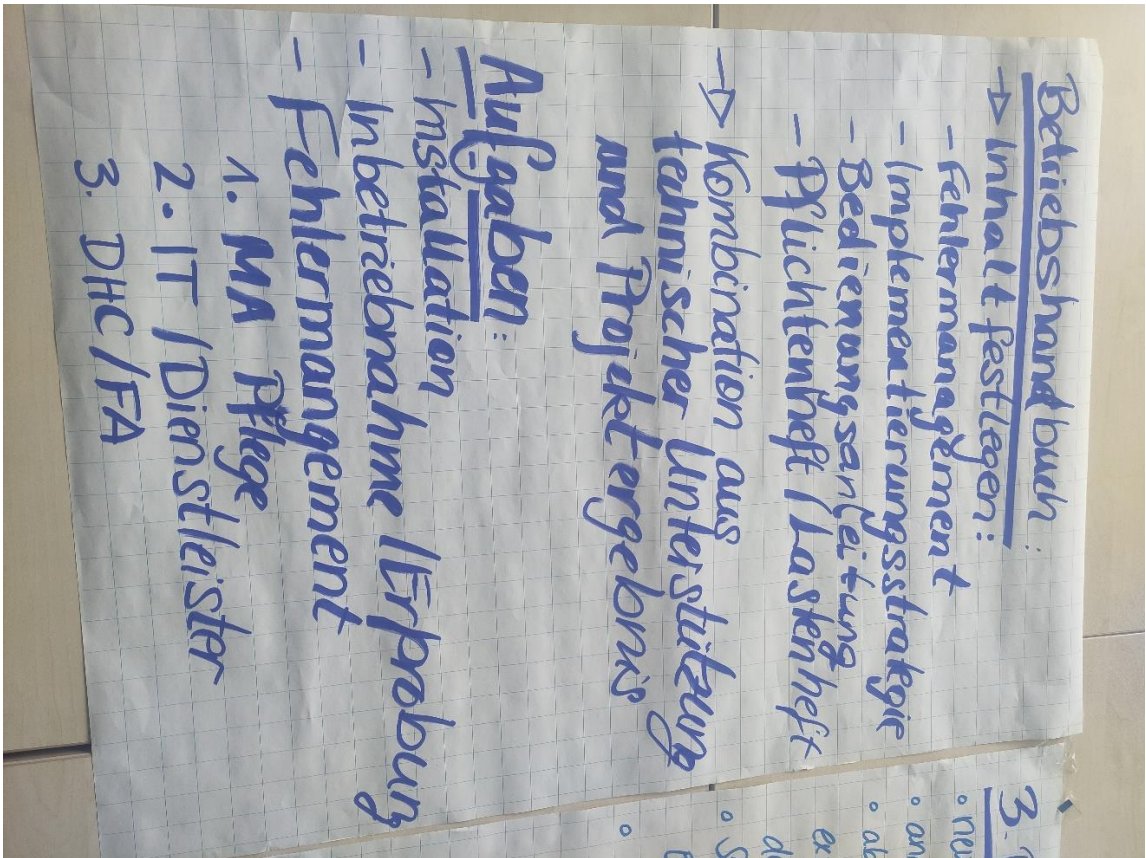 Betriebshandbuch:
→ Inhalt festlegen:
- Fehlermanagement
- Implementierungsstrategie
- Bedienungsanleitung
- Pflichtenheft / Lastenheft
→ Kombination aus
technischer Unterstützung
und Projektergebnis
Aufgaben:
- Installation
- Inbetriebnahme / Erprobung
- Fehlermangement
1. MA Pflege
2. IT / Dienstleister
3. DHC / FA
3.